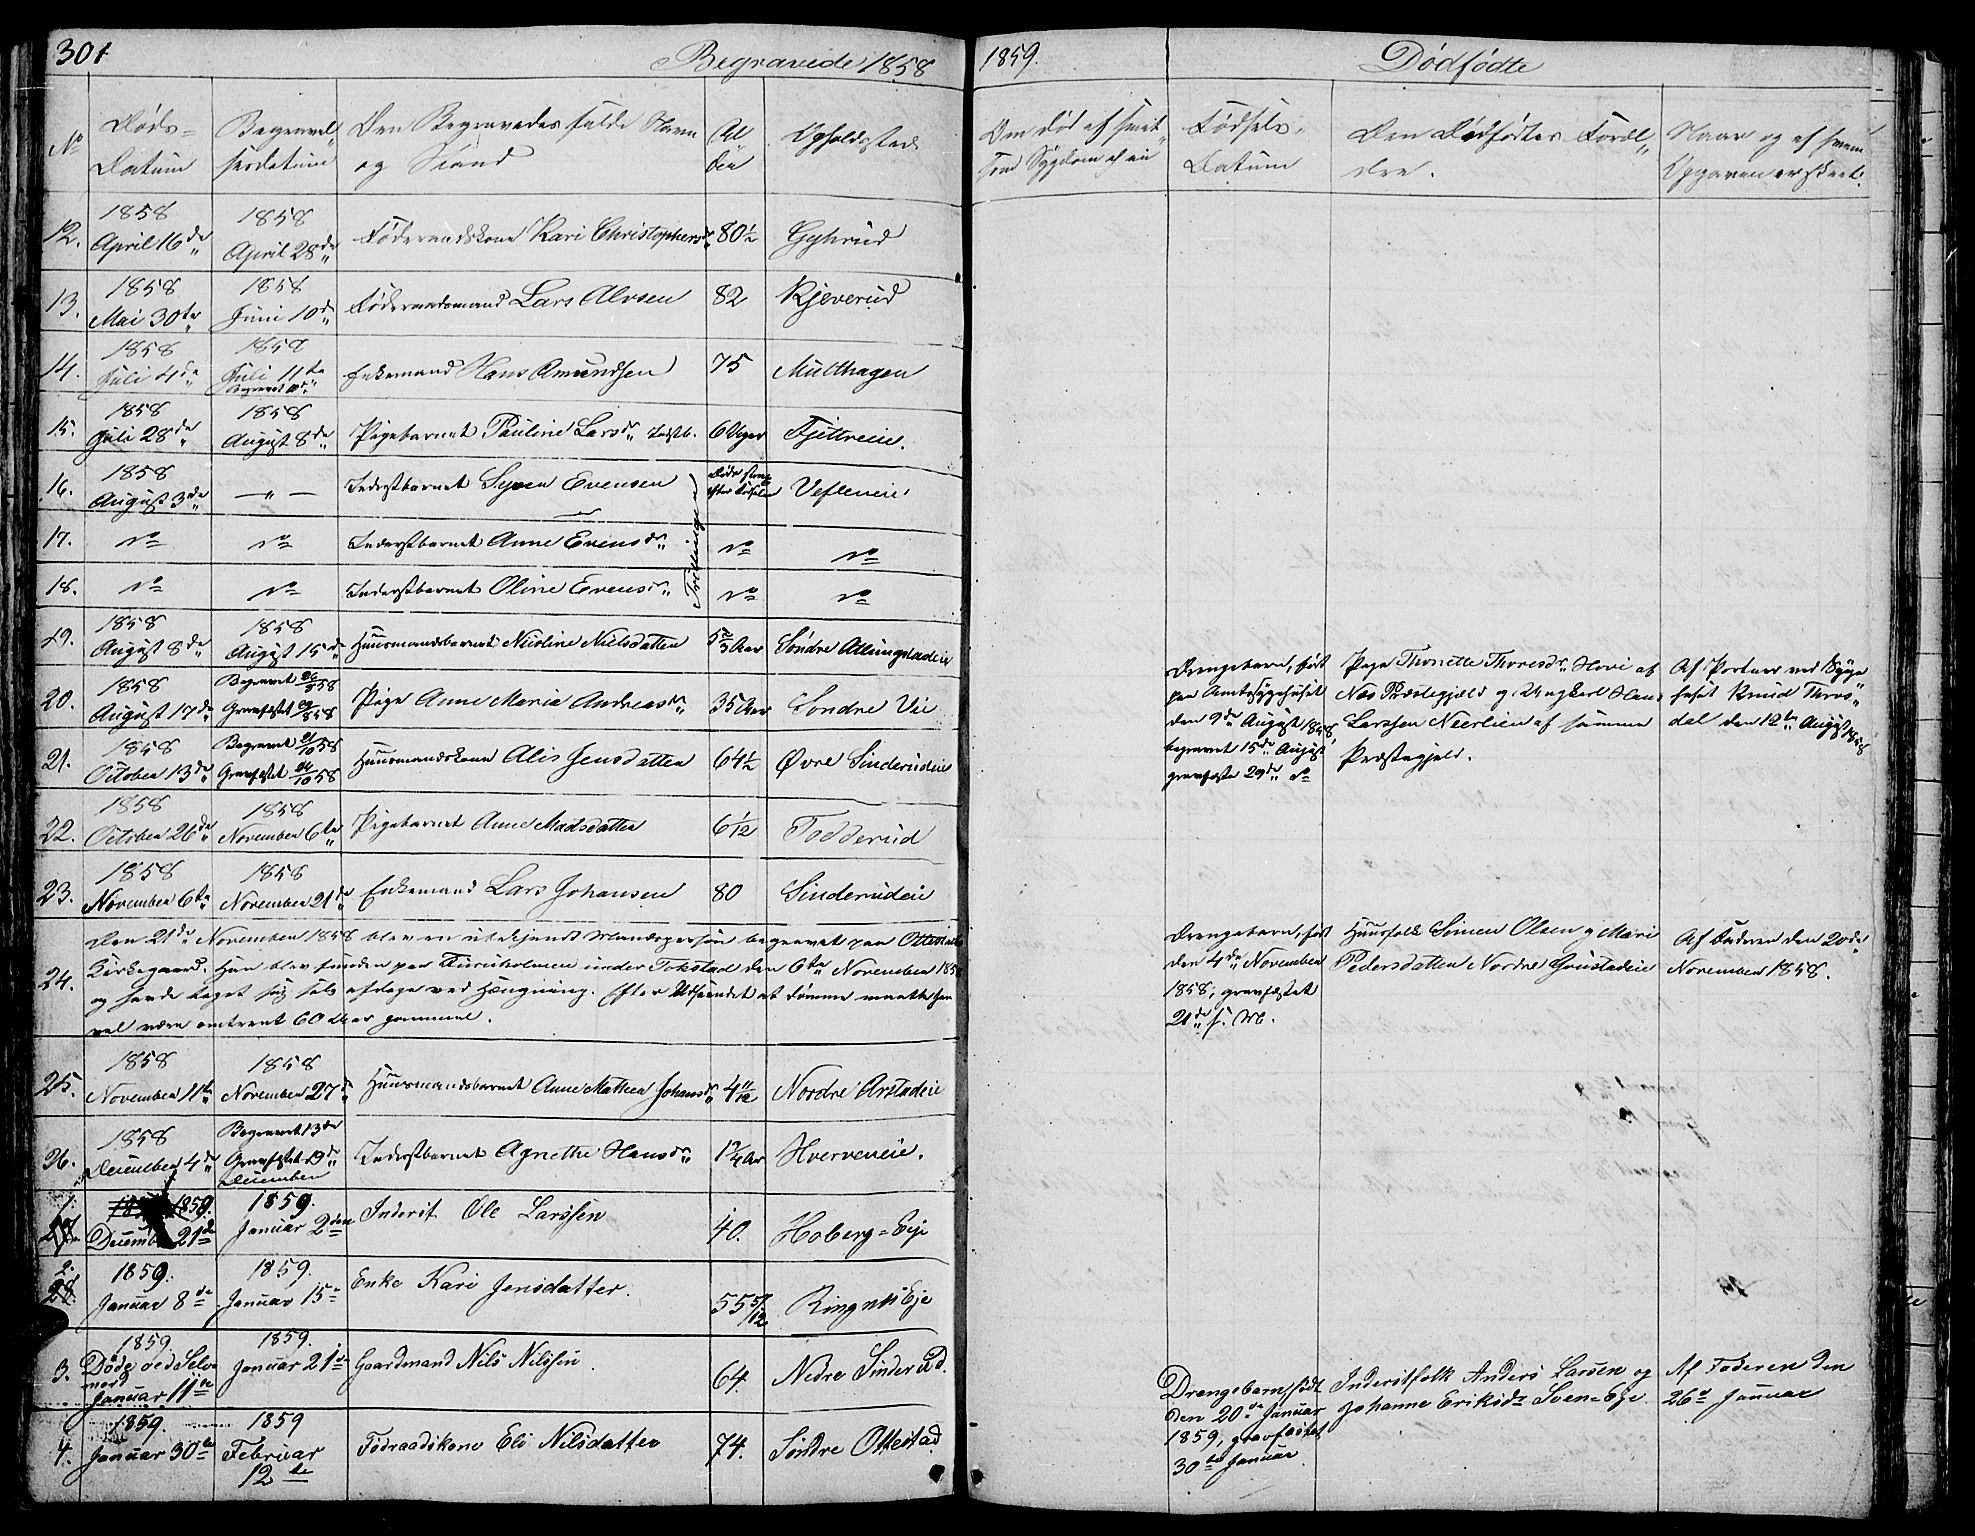 301
Begravede 1858
1859.
Dødfødte
No
Døds-
Datum
Begravel
sesdatum
Den Begravedes fulde Navn
og Stand
Al
der
Opholdssted
Om død af smit
som Sygdom af en
Fødsels-
Datum
Den Dødfødtes Foræl
dre.
Naar og af hvem
Opgaven er skeet.
12.
1858
April 16de
1858
April 28de
Føderaadskone Kari Christophersdr
80½
Gyhrud
13.
1858
Mai 30te
1858
Juni 10de
Føderaadsmand Lars Alvsen
82
Kjeverud
14.
1858
Juli 4de
1858
Juli 11te
Enkemand Hans Amundsen
75
Multhagen
15.
1858
Juli 28de
1858
August 8de
Pigebarnet Pauline Larsdr Indstb.
6 Uger
Fjettreie.
16.
1858
August 3de
— " —
Inderstbarnet Syver Evensen
Døde strax
efter Fødselen
Vefleneie
17.
do
do
Inderstbarnet Anne Evensdr
do
do
18.
do
do
Inderstbarnet Oline Evensdr
do
do
Trillinger
19.
1858
August 8de
1858
August 15de
Huusmandsbarnet Nicoline Nielsdatter
5⅔ Aar
Søndre Alhungstadeie
20.
1858
August 17de
Begravet 26/8 58
Gravfæstet 29/8 58
Pige Anne Maria Andreasdr
35 Aar
Søndre Vie
21.
1858
October 13de
Begravet 21/10 58
Gravfæstet 24/10 58
Huusmandskone Alis Jensdatter
64½
Øvre Sinderudeie
22.
1858
October 26de
1858
November 6te
Pigebarnet Anne Madsdatter
6 1/12
Todderud
23.
1858
November 6te
1858
November 21de
Enkemand Lars Johansen
80
Sinderudeie
24.
Den 21de November 1858 blev en ubekjendt Mandsperson begravet paa Ottestad
Kirkegaard. Han blev funden paa Furuholmen under Tokstad den 6te November 1858
og havde taget sig selv afdage ved Hængning. Efter Udseendet at dømme maatte han
vel være omtrent 60 Aar gammel.
25.
1858
November 11te
1858
November 27de
Huusmandsbarnet Anne Mathea Johansdr
4 11/12
Nordre Arstadeie
26.
1858
December 4de
Begravet 13de
Gravfæstet 19de
December
Inderstbarnet Agnethe Hansdr
1¾ Ar
Hverveneie.
1.
27.
1859.
Decembr 21de
1859.
Januar 2den
Inderst Ole Larssen
40.
Hoberg=Eje
2.
28.
1859.
Januar 8de
1859.
Januar 15de
Enke Kari Jensdatter.
55 5/12
Ringnes Eje
3.
1859.
Døde ved Selv
mord
Januar 11te
1859.
Januar 21de
Gaardmand Nils Nilssen.
64.
Nedre Sinderud.
4.
1859.
Januar 30te
1859
Februar
12te
Føderaadskone Eli Nilsdatter
74.
Søndre Ottestad
Drengebarn, født
paa Amtssygehuset
den 9de August 1858,
begravet 15de August
gravfæstet 29de do
Pige Thonette Thoresdr Hovi af
Næs Præstegjæld og Ungkarl Hans
Larssen Neerlien af samme
Præstegjeld.
Af Portner ved Syge
huset Knud Thros
dal den 12te August 1858
Drengebarn, født
den 4de November
1858, gravfæstet
21de s. M.
Huusfolk Simen Olsen og Mari
Pedersdatter Nordre Gaustadeie
Af Faderen den 20de
November 1858.
Drengebarn, født
den 20de Januar
1859, gravfæstet
30te Januar
Inderstfolk Anders Larsen og
Johanne Eriksdr Sven-Eje.
Af Faderen den
26de Januar